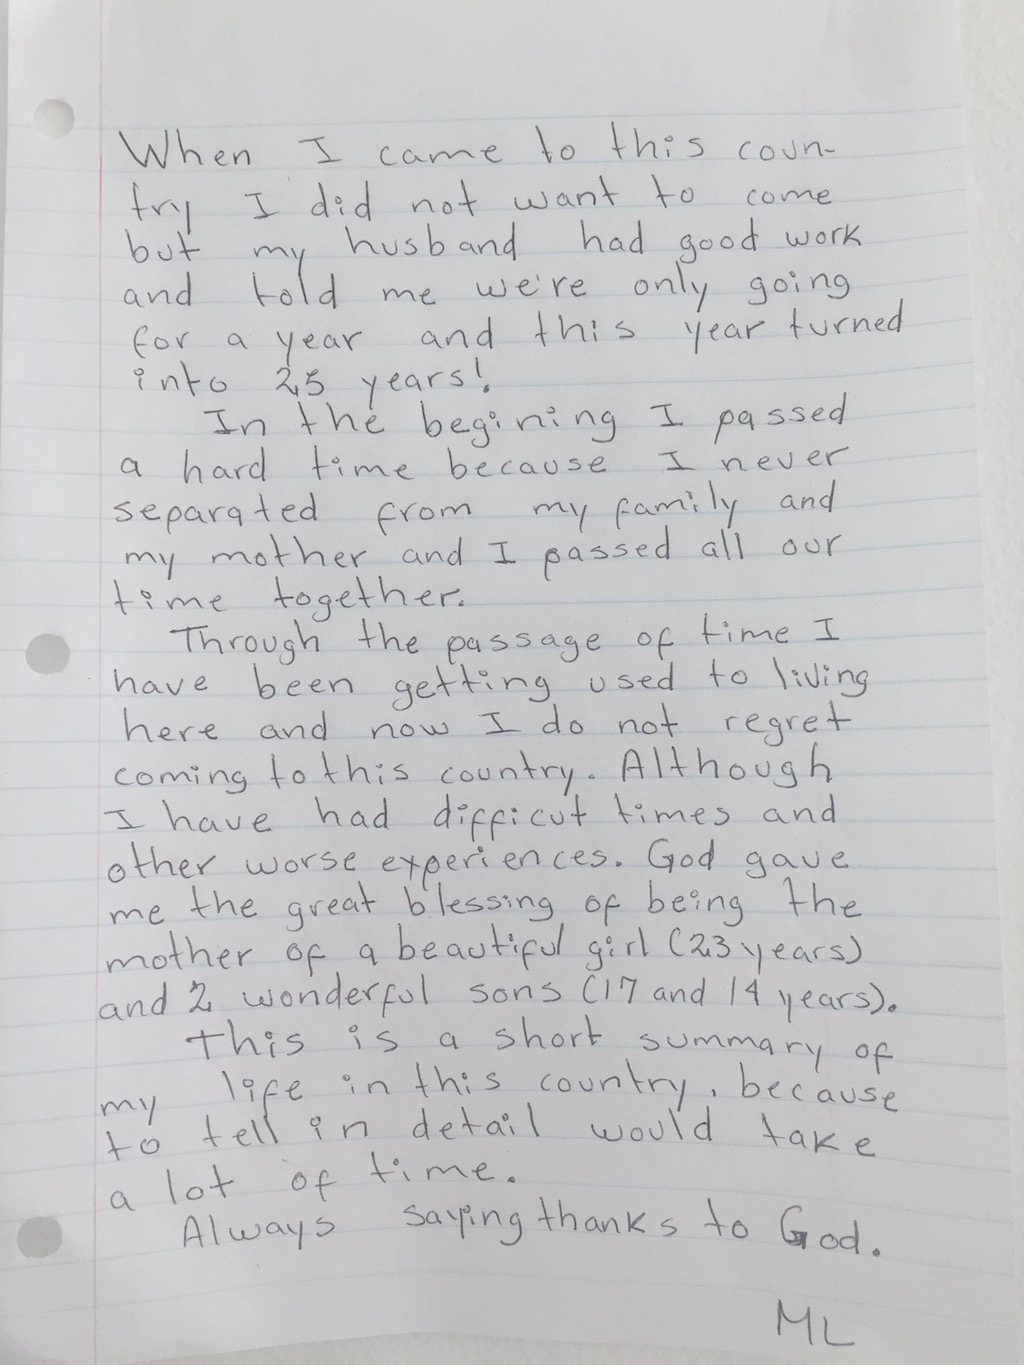 When I came to this coun-
try I did not want to come
but my husband had good work
and told me we're only going
for a year and this year turned
into 25 years!
In the begining I passed
a hard time because I never
separated from my family and
my mother and I passed all our
time together.
Through the passage of time I
have been getting used to living
here and now I do not regret
coming to this country. Although
I have had difficut times and
other worse experiences. God gave
me the great blessing of being the
mother of a beautiful girl (23 years)
and 2 wonderful sons (17 and 14 years).
This is a short summary of
my life in this country, because
to tell in detail would take
a lot of time.
Always saying thanks to God.
ML